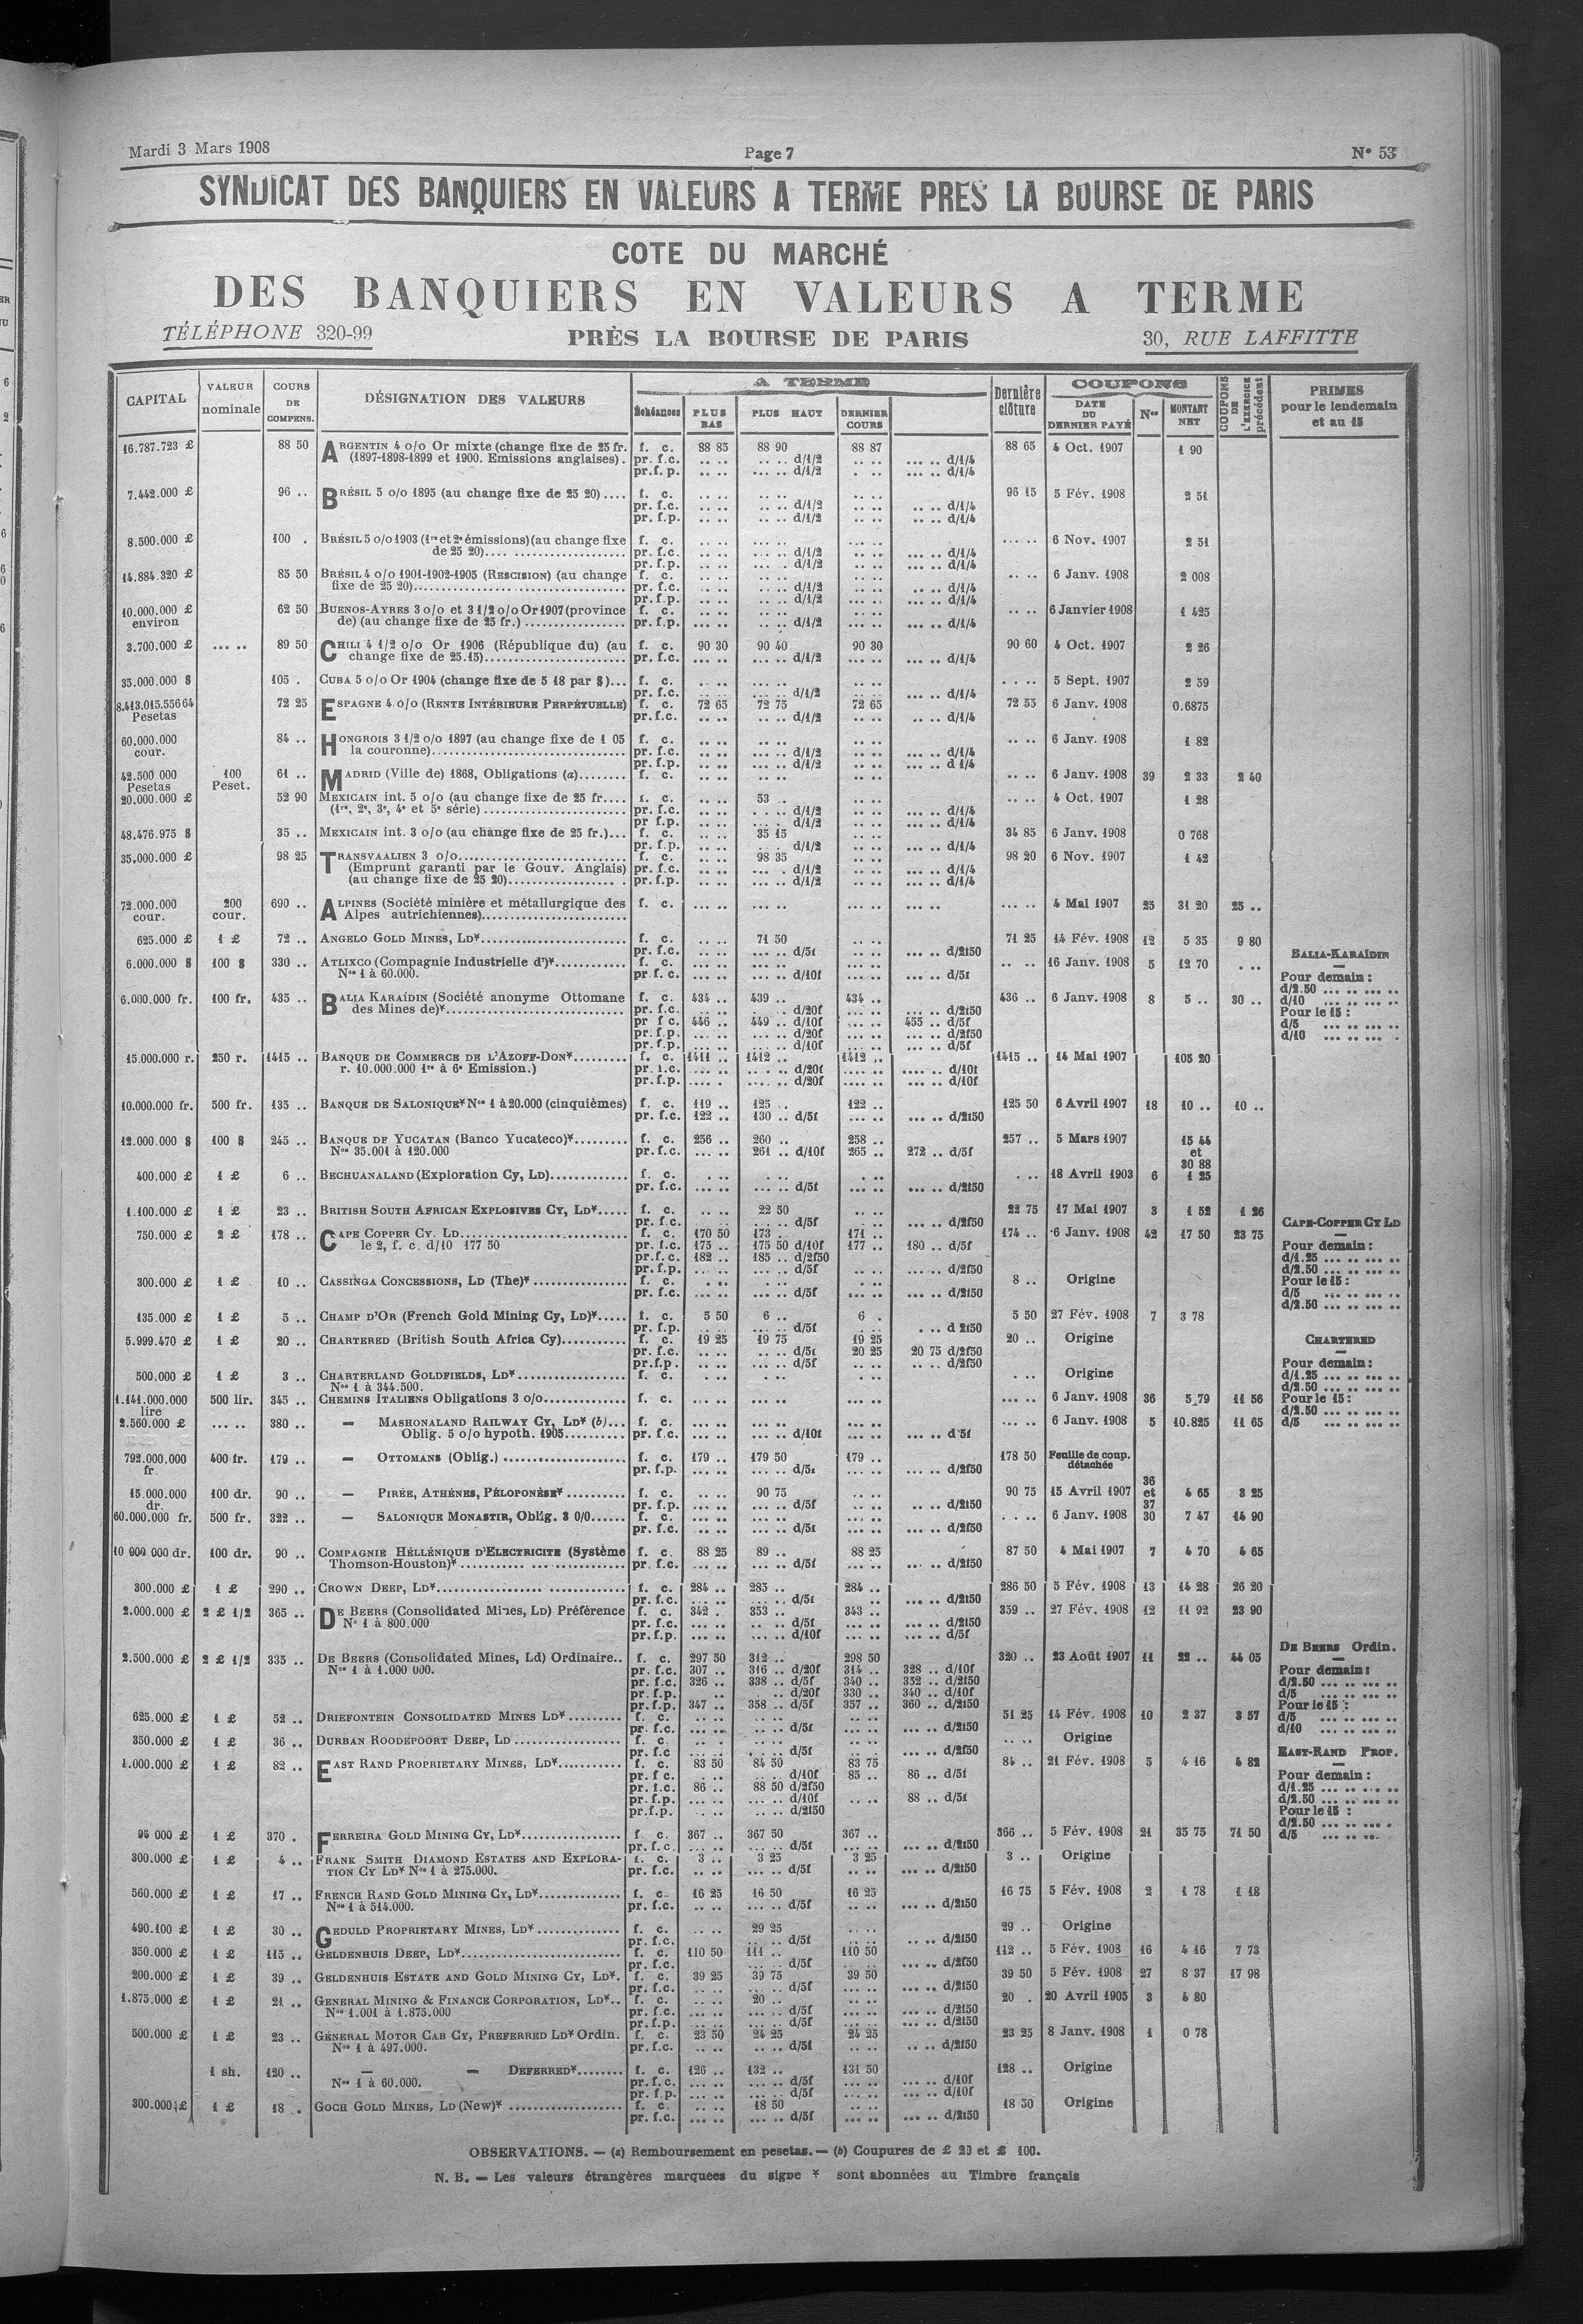 Mardi 3 Mars 1908 Page 7 N° 53
SYNDICAT DES BANQUIERS EN VALEURS A TERME PRES LA BOURSE DE PARIS
COTE DU MARCHÉ
DES BANQUIERS EN VALEURS A TERME
TÉLÉPHONE 320-99 PRÈS LA BOURSE DE PARIS 30, RUE LAFFITTE
CAPITAL VALEUR nominale COURS DE COMPENS. DÉSIGNATION DES VALEURS A TERME Échéances PLUS BAS PLUS HAUT DERNIER COURS Dernière clôture COUPONS DATE DU DERNIER PAYÉ Nos MONTANT NET COUPONS DE L'EXERCICE précédent PRIMES pour le lendemain et au 15
16.787.723 £ 88 50 ARGENTIN 4 o/o Or mixte (change fixe de 25 fr. f. c. 88 85 88 90 88 87 88 65 4 Oct. 1907 1 90
(1897-1898-1899 et 1900. Emissions anglaises). pr. f.c. .. .. .. .. d/1/2 .. .. ... .. d/1/4
pr.f. p. .. .. .. .. d/1/2 . .. ... .. d/1/4
7.442.000 £ 96 .. BRÉSIL 5 o/o 1895 (au change fixe de 25 20).... f. c. 96 15 5 Fév. 1908 2 51
pr. f.c. .. .. .. .. d/1/2 .. .. d/1/4
pr. f.p. .. .. .. .. d/1/2 .. .. d/1/4
8.500.000 £ 100 . BRÉSIL 5 o/o 1903 (1re et 2e émissions)(au change fixe f. c. 6 Nov. 1907 2 51
de 25 20).... pr. f.c. d/1/2 d/1/4
pr. f.p. d/1/2 d/1/4
14.884.320 £ 85 50 BRÉSIL 4 o/o 1901-1902-1905 (RESCISION) (au change f. c. 6 Janv. 1908 2 008
fixe de 25 20).... pr. f.c. d/1/2 d/1/4
pr. f.p. d/1/2 d/1/4
10.000.000 £ 62 50 BUENOS-AYRES 3 o/o et 3 1/2 o/o Or 1907 (province f. c. 6 Janvier 1908 1 425
environ de) (au change fixe de 25 fr.) .... pr. f.p. d/1/2 d/1/4
3.700.000 £ ... .. 89 50 CHILI 4 1/2 o/o Or 1906 (République du) (au f. c. 90 30 90 40 90 30 90 60 4 Oct. 1907 2 26
change fixe de 25.15).... pr. f.c. d/1/2 d/1/4
35.000.000 $ 105 . CUBA 5 o/o Or 1904 (change fixe de 5 18 par $)... f. c. 5 Sept. 1907 2 59
pr. f.c. d/1/2 d/1/4
8.413.015.556 64 72 25 ESPAGNE 4 o/o (RENTE INTÉRIEURE PERPÉTUELLE) f. c. 72 65 72 75 72 65 72 55 6 Janv. 1908 0.6875
Pesetas pr. f.c. d/1/2 d/1/4
60.000.000 84 .. HONGROIS 3 1/2 o/o 1897 (au change fixe de 1 05 f. c. 6 Janv. 1908 1 82
cour. la couronne).... pr. f.c. d/1/2 d/1/4
pr. f.p. d/1/2 d 1/4
42.500 000 100 61 .. MADRID (Ville de) 1868, Obligations (a)........ f. c. 6 Janv. 1908 39 2 33 2 40
Pesetas Peset.
20.000.000 £ 52 90 MEXICAIN int. 5 o/o (au change fixe de 25 fr.... f. c. 53 .. 4 Oct. 1907 1 28
(1re, 2e, 3e, 4e et 5e série) .... pr. f.c. d/1/2 d/1/4
pr f.p. d/1/2 d/1/4
48.476.975 $ 35 .. MEXICAIN int. 3 o/o (au change fixe de 25 fr.)... f. c. 35 15 34 85 6 Janv. 1908 0 768
pr. f.p. d/1/2 d/1/4
35.000.000 £ 98 25 TRANSVAALIEN 3 o/o.... f. c. 98 35 98 20 6 Nov. 1907 1 42
(Emprunt garanti par le Gouv. Anglais) pr. f.c. d/1/2 d/1/4
(au change fixe de 25 20).... pr. f.p. d/1/2 d/1/4
72.000.000 200 690 .. ALPINES (Société minière et métallurgique des f. c. 4 Mai 1907 25 31 20 25 ..
cour. cour. Alpes autrichiennes)....
625.000 £ 1 £ 72 .. ANGELO GOLD MINES, LD*.... f. c. 71 50 71 25 14 Fév. 1908 12 5 35 9 80
pr. f.c. d/5f d/2f50 BALIA-KARAÏDIN
6.000.000 $ 100 $ 330 .. ATLIXCO (Compagnie Industrielle d')*.... f. c. 16 Janv. 1908 5 12 70
Nos 1 à 60.000. pr f. c. d/10f d/5f Pour demain :
d/2.50
6.000.000 fr. 100 fr. 435 .. BALIA KARAÏDIN (Société anonyme Ottomane f. c. 434 .. 439 .. 434 .. 436 .. 6 Janv. 1908 8 5 .. 30 .. d/10
des Mines de)*.... pr. f.c. d/20f d/2f50 Pour le 15 :
pr f c. 446 .. 449 .. d/10f 455 .. d/5f d/5
pr. f.p. d/20f d/2f50 d/10
pr. f.p. d/10f d/5f
15.000.000 r. 250 r. 1415 .. BANQUE DE COMMERCE DE L'AZOFF-DON*.... f. c. 1411 .. 1412 .. 1412 .. 1415 .. 14 Mai 1907 105 20
r. 10.000.000 1re à 6e Emission.) pr. f.c. d/20f d/10f
pr. f.p. d/20f d/10f
10.000.000 fr. 500 fr. 135 .. BANQUE DE SALONIQUE* Nos 1 à 20.000 (cinquièmes) f. c. 119 .. 125 .. 122 .. 125 50 6 Avril 1907 18 10 .. 10 ..
pr. f.c. 122 .. 130 .. d/5f d/2f50
12.000.000 $ 100 $ 245 .. BANQUE DE YUCATAN (Banco Yucateco)*.... f. c. 256 .. 260 .. 258 .. 257 .. 5 Mars 1907 15 44
Nos 35.001 à 120.000 pr. f.c. 261 .. d/10f 265 .. 272 .. d/5f et
30 88
400.000 £ 1 £ 6 .. BECHUANALAND (Exploration Cy, LD).... f. c. 18 Avril 1903 6 1 25
pr. f.c. d/5f d/2f50
1.100.000 £ 1 £ 23 .. BRITISH SOUTH AFRICAN EXPLOSIVES CY, LD*..... f. c. 22 50 22 75 17 Mai 1907 3 1 52 1 26
pr. f.c. d/5f d/2f50 CAPE-COPPER CY LD
750.000 £ 2 £ 178 .. CAPE COPPER CY. LD.... f. c. 170 50 173 .. 171 .. 174 .. 6 Janv. 1908 42 17 50 23 75
le 2, f. c. d/10 177 50 pr. f.c. 175 .. 175 50 d/10f 177 .. 180 .. d/5f Pour demain :
pr. f.c. 182 .. 185 .. d/2f50 d/1.25
pr. f.p. d/5f d/2f50 d/2.50
300.000 £ 1 £ 10 .. CASSINGA CONCESSIONS, LD (The)*.... f. c. 8 .. Origine Pour le 15 :
pr. f.c. d/5f d/2f50 d/5
d/2.50
135.000 £ 1 £ 5 .. CHAMP D'OR (French Gold Mining Cy, LD)*..... f. c. 5 50 6 .. 6 . 5 50 27 Fév. 1908 7 3 78
pr. f.p. d/5f d 2f50
5.999.470 £ 1 £ 20 .. CHARTERED (British South Africa Cy).... f. c. 19 25 19 75 19 25 20 .. Origine CHARTERED
pr. f.c. d/5f 20 25 20 75 d/2f50
pr.f.p. d/5f d/2f50 Pour demain :
500.000 £ 1 £ 3 .. CHARTERLAND GOLDFIELDS, LD*.... f. c. Origine d/1.25
Nos 1 à 344.500. d/2.50
1.141.000.000 500 lir. 345 .. CHEMINS ITALIENS Obligations 3 o/o.... f. c. 6 Janv. 1908 36 5,79 11 56 Pour le 15 :
lire d/2.50
2.560.000 £ ... .. 380 .. — MASHONALAND RAILWAY CY, LD* (b)... f. c. 6 Janv. 1908 5 10.825 11 65 d/5
Oblig. 5 o/o hypoth. 1905.... pr. f.c. d/10f d 5f
792.000.000 400 fr. 179 .. — OTTOMANS (Oblig.) .... f. c. 179 .. 179 50 179 .. 178 50 Feuille de coup.
fr. pr. f.p. d/5f d/2f50 détachée
15.000.000 100 dr. 90 .. — PIRÉE, ATHÈNES, PÉLOPONÈSE* .... f. c. 90 75 90 75 15 Avril 1907 36 et 37 4 65 3 25
dr. pr. f.p. d/5f d/2f50
60.000.000 fr. 500 fr. 322 .. — SALONIQUE MONASTIR, Oblig. 3 0/0...... f. c. 6 Janv. 1908 30 7 47 14 90
pr. f.c. d/5f d/2f50
10 000 000 dr. 100 dr. 90 .. COMPAGNIE HÉLLÉNIQUE D'ELECTRICITE (Système f. c. 88 25 89 .. 88 25 87 50 4 Mai 1907 7 4 70 4 65
Thomson-Houston)*.... pr. f.c. d/5f d/2f50
300.000 £ 1 £ 290 .. CROWN DEEP, LD*.... f. c. 284 .. 285 .. 284 .. 286 50 5 Fév. 1908 13 14 28 26 20
pr. f.c. d/5f d/2f50
2.000.000 £ 2 £ 1/2 365 .. DE BEERS (Consolidated Mines, LD) Préférence f. c. 342 . 353 .. 343 .. 359 .. 27 Fév. 1908 12 11 92 23 90
N° 1 à 800.000 pr. f.c. d/5f d/2f50
pr.f.p. d/10f d/5f
DE BEERS Ordin.
2.500.000 £ 2 £ 1/2 335 .. DE BEERS (Consolidated Mines, Ld) Ordinaire.. f. c. 297 50 312 .. 298 50 320 .. 23 Août 1907 11 22 .. 44 05
Nos 1 à 1.000 000. pr. f.c. 307 .. 316 .. d/20f 314 .. 328 .. d/10f Pour demain :
pr. f.c. 326 .. 338 .. d/5f 340 .. 352 .. d/2f50 d/2.50
pr. f.p. d/20f 330 .. 340 .. d/10f d/5
pr. f.p. 347 .. 358 .. d/5f 357 .. 360 .. d/2f50 Pour le 15 :
625.000 £ 1 £ 52 .. DRIEFONTEIN CONSOLIDATED MINES LD* .... f. c. 51 25 14 Fév. 1908 10 2 37 3 57 d/5
pr. f.c. d/5f d/2f50 d/10
350.000 £ 1 £ 36 .. DURBAN ROODEPOORT DEEP, LD .... f. c. Origine
pr. f.c d/5f d/2f50 EAST-RAND PROP.
1.000.000 £ 1 £ 82 .. EAST RAND PROPRIETARY MINES, LD*.... f. c. 83 50 84 50 83 75 84 .. 21 Fév. 1908 5 4 16 4 82
pr. f c. d/10f 85 .. 86 .. d/5f Pour demain :
pr. f.c. 86 .. 88 50 d/2f50 d/1.25
pr. f.p. d/10f 88 .. d/5f d/2.50
pr.f.p. d/2f50 Pour le 15 :
d/2.50
95 000 £ 1 £ 370 . FERREIRA GOLD MINING CY, LD*.... f. c. 367 .. 367 50 367 .. 366 .. 5 Fév. 1908 21 35 75 71 50 d/5
pr. f.c. d/5f d/2f50
300.000 £ 1 £ 4 .. FRANK SMITH DIAMOND ESTATES AND EXPLORA- f. c. 3 .. 3 25 3 25 3 .. Origine
TION CY LD* Nos 1 à 275.000. pr. f.c. d/5f d/2f50
560.000 £ 1 £ 17 .. FRENCH RAND GOLD MINING CY, LD*.... f. c. 16 25 16 50 16 25 16 75 5 Fév. 1908 2 1 78 1 18
Nos 1 à 514.000. pr. f.c. d/5f d/2f50
490.100 £ 1 £ 30 .. GEDULD PROPRIETARY MINES, LD* .... f. c. 29 25 29 .. Origine
pr. f.c. d/5f d/2f50
350.000 £ 1 £ 115 .. GELDENHUIS DEEP, LD*.... f. c. 110 50 111 .. 110 50 112 .. 5 Fév. 1908 16 4 16 7 73
pr. f.c. d/5f d/2f50
200.000 £ 1 £ 39 .. GELDENHUIS ESTATE AND GOLD MINING CY, LD*. f. c. 39 25 39 75 39 50 39 50 5 Fév. 1908 27 8 37 17 98
pr. f.c. d/5f d/2f50
1.875.000 £ 1 £ 21 .. GENERAL MINING & FINANCE CORPORATION, LD*.. f. c. 20 .. 20 . 20 Avril 1905 3 4 80
Nos 1.001 à 1.875.000 pr. f.c. d/5f d/2f50
pr. f.p. d/5f d/2f50
500.000 £ 1 £ 23 .. GÉNERAL MOTOR CAB CY, PREFERRED LD* Ordin. f. c. 23 50 24 25 24 25 23 25 8 Janv. 1908 1 0 78
Nos 1 à 497.000. pr. f.c. d/5f d/2f50
1 sh. 120 .. — — DEFERRED*........ f. c. 126 .. 132 .. 131 50 128 .. Origine
Nos 1 à 60.000. pr. f.c. d/5f d/10f
pr. f.p. d/5f d/10f
300.000 £ 1 £ 18 . GOCH GOLD MINES, LD (New)* .... f. c. 18 50 18 50 Origine
pr. f.c. d/5f d/2f50
OBSERVATIONS. — (a) Remboursement en pesetas. — (b) Coupures de £ 20 et £ 100.
N. B. — Les valeurs étrangères marquées du signe * sont abonnées au Timbre français